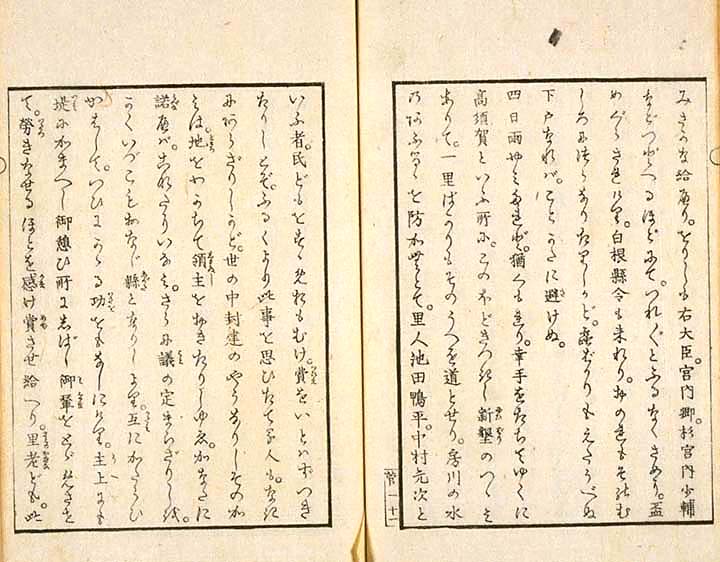 給へり。をりしも右大臣。宮内卿杉宮内少輔
などつどへるほどにて。つれ〴〵とふるなくさめり。盃
めぐらされけり。白根縣令も来れり。おのれもそのむ
しろに侍りありたりしかど。盃ばかりもえたうべぬ
下戸なれば。ことかたに避けぬ。
四日雨やみたれど。猶くもれり。幸手をたちてゆくに
高須賀といふ所に。このほどきづきし新墾のつゝみ
ありて。一里ばかりもそのうへを道とせり。房川の水
のあふるゝを防がむとて。里人池田鴨平。中村元次と
管 十一
いふ者。民どもをすゝめおもむけ。費をいとはずつき
たりしとぞ。ふるくより此事を思ひたてる人も。なき
にあらざりしかど。世の中封建のやうなりしそのか
みは。地をわかちて領主をおきたりしゆゑ。かなたに
諾へば。こなたにいなみ。さらに議の定まらざりしを。
かくいづこもおなじ縣となりしより。互にかたらひ
かはして。つひにかゝる功をもなしにけり。主上にも
堤にかまへし御憩ひ所にしばし御輦をとどめさせ
て。勞きなせるほどを感け賞させ給へり。里老ども。此